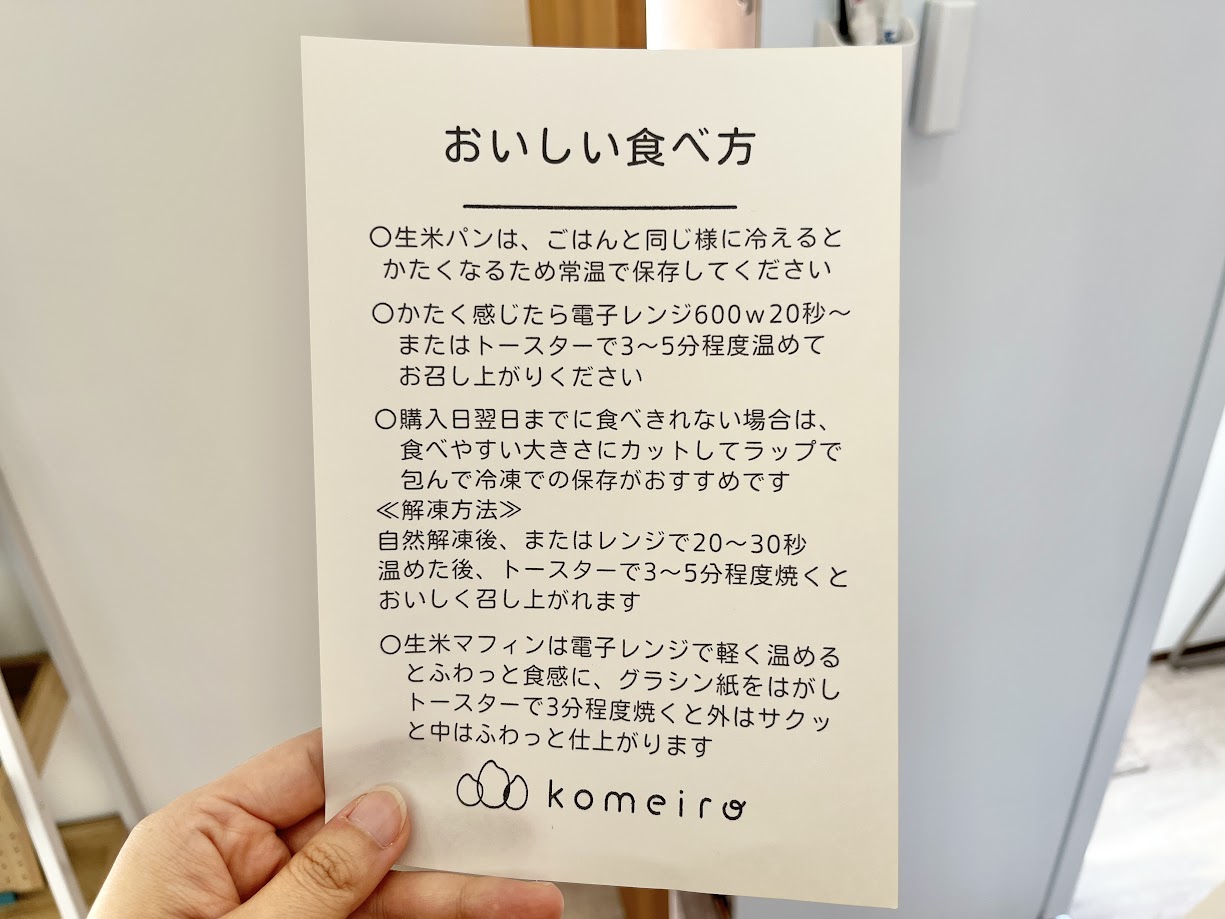 おいしい食べ方
〇生米パンは、ごはんと同じ様に冷えると
かたくなるため常温で保存してください
〇かたく感じたら電子レンジ600w20秒～
またはトースターで3～5分程度温めて
お召し上がりください
〇購入日翌日までに食べきれない場合は、
食べやすい大きさにカットしてラップで
包んで冷凍での保存がおすすめです
≪解凍方法≫
自然解凍後、またはレンジで20～30秒
温めた後、トースターで3～5分程度焼くと
おいしく召し上がれます
〇生米マフィンは電子レンジで軽く温める
とふわっと食感に、グラシン紙をはがし
トースターで3分程度焼くと外はサクッ
と中はふわっと仕上がります
komeiro